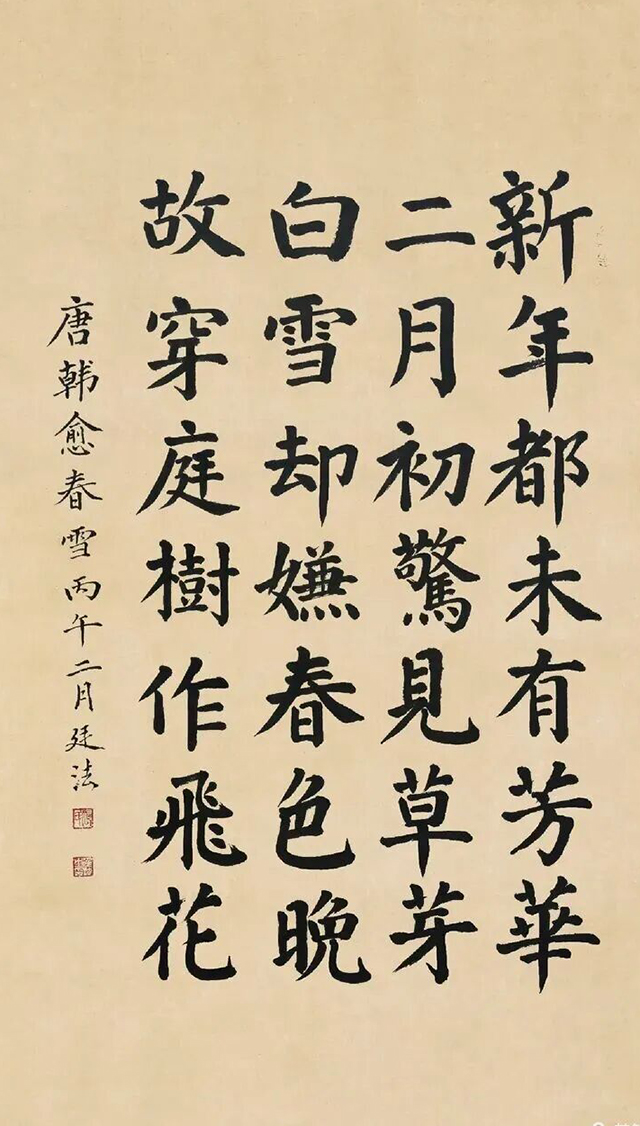 新年都未有芳華
二月初驚見草芽
白雪却嫌春色晚
故穿庭樹作飛花
唐韩愈春雪丙午二月廷法